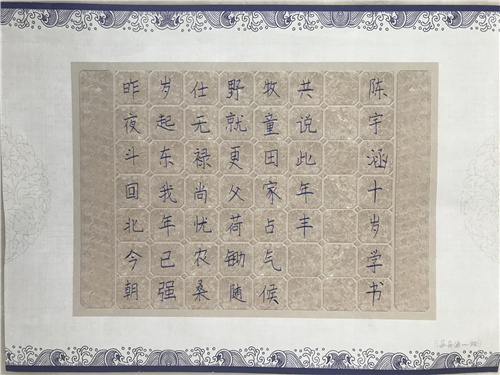 昨夜斗回北今朝
岁起东我年已强
仕无禄尚忧农桑
野就更父荷锄随
牧童田家占气候
共说此年丰
陈宇涵十岁学书